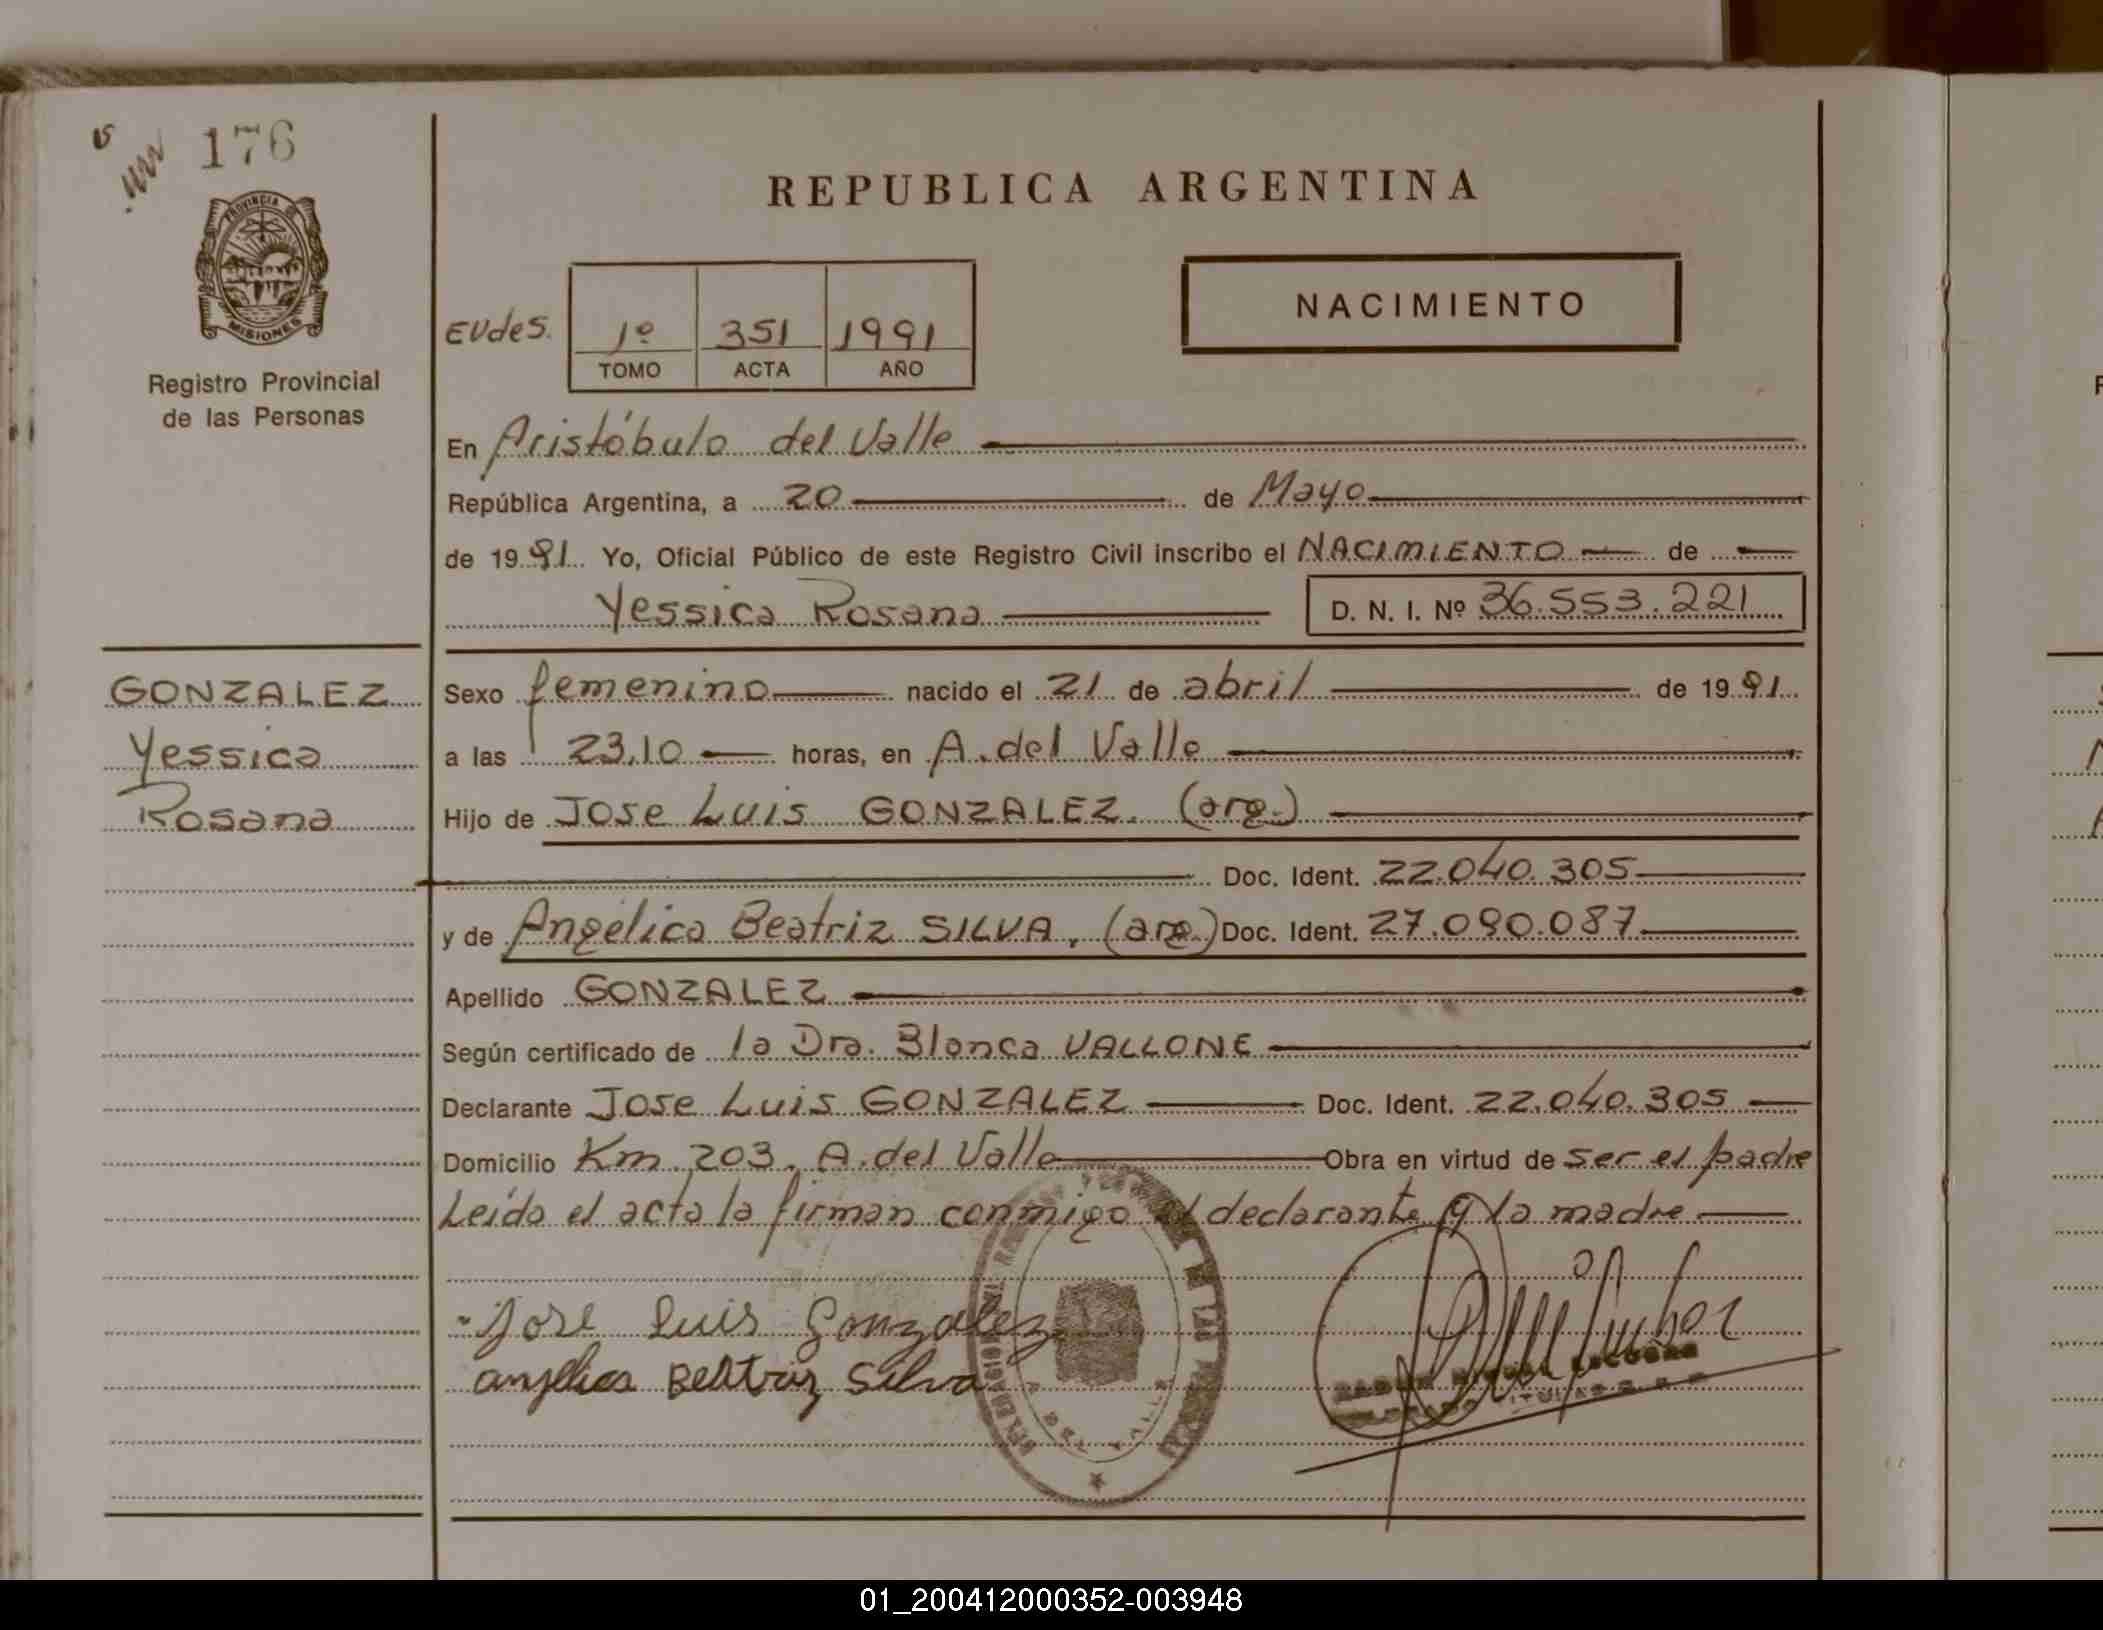 176
PROVINCIA DE
MISIONES
Registro Provincial
de las Personas
REPUBLICA ARGENTINA
EVdeS.
1º 351 1991
TOMO ACTA AÑO
NACIMIENTO
En Aristóbulo del Valle
República Argentina, a 20 de Mayo
de 1991. Yo, Oficial Público de este Registro Civil inscribo el NACIMIENTO de
Yessica Rosana D. N. I. Nº 36.553.221
GONZALEZ
Yessica
Rosana
Sexo femenino nacido el 21 de abril de 1991
a las 23,10 horas, en A. del Valle
Hijo de Jose Luis GONZALEZ. (arg.)
Doc. Ident. 22.040.305
y de Angélica Beatriz SILVA, (arg.) Doc. Ident. 27.090.087
Apellido GONZALEZ
Según certificado de la Dra. Blanca VALLONE
Declarante Jose Luis GONZALEZ Doc. Ident. 22.040.305
Domicilio Km 203, A. del Valle Obra en virtud de ser el padre
Leída el acta la firman conmigo el declarante y la madre
Jose Luis Gonzalez
angelica Beatriz Silva
01_200412000352-003948